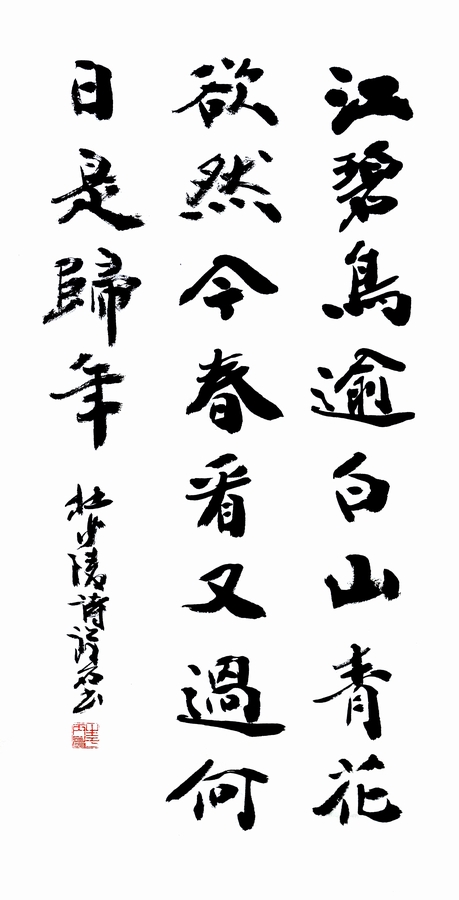 江碧鳥逾白山青花
欲然今春看又過何
日是歸年
杜少陵詩